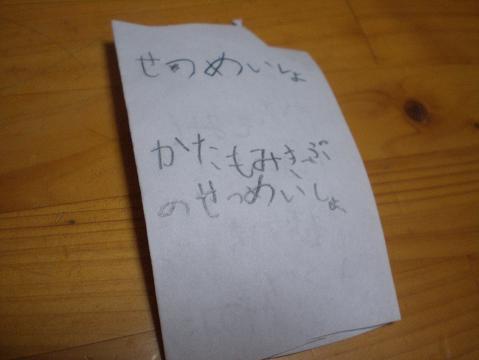 せつめいしょ
かたもみきっぷ
のせつめいしょ